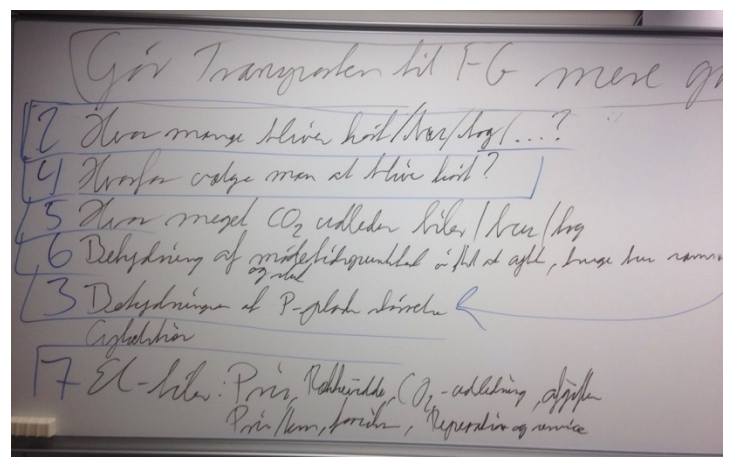 Gør Transporten til FG mere gr
2 Hvor mange bliver kørt/bus/tog/...?
4 Hvorfor vælge man at blive kørt?
5 Hvor meget CO₂ udleder biler/bus/tog
6 Betydning af mødetidspunktet til at cykle, bruge bus
og sted
3 Betydningen af P-plads størrelse
17 El-biler: Pris, Rækkevidde, CO₂-udledning, afgifter
Pris/km, Reparation og service